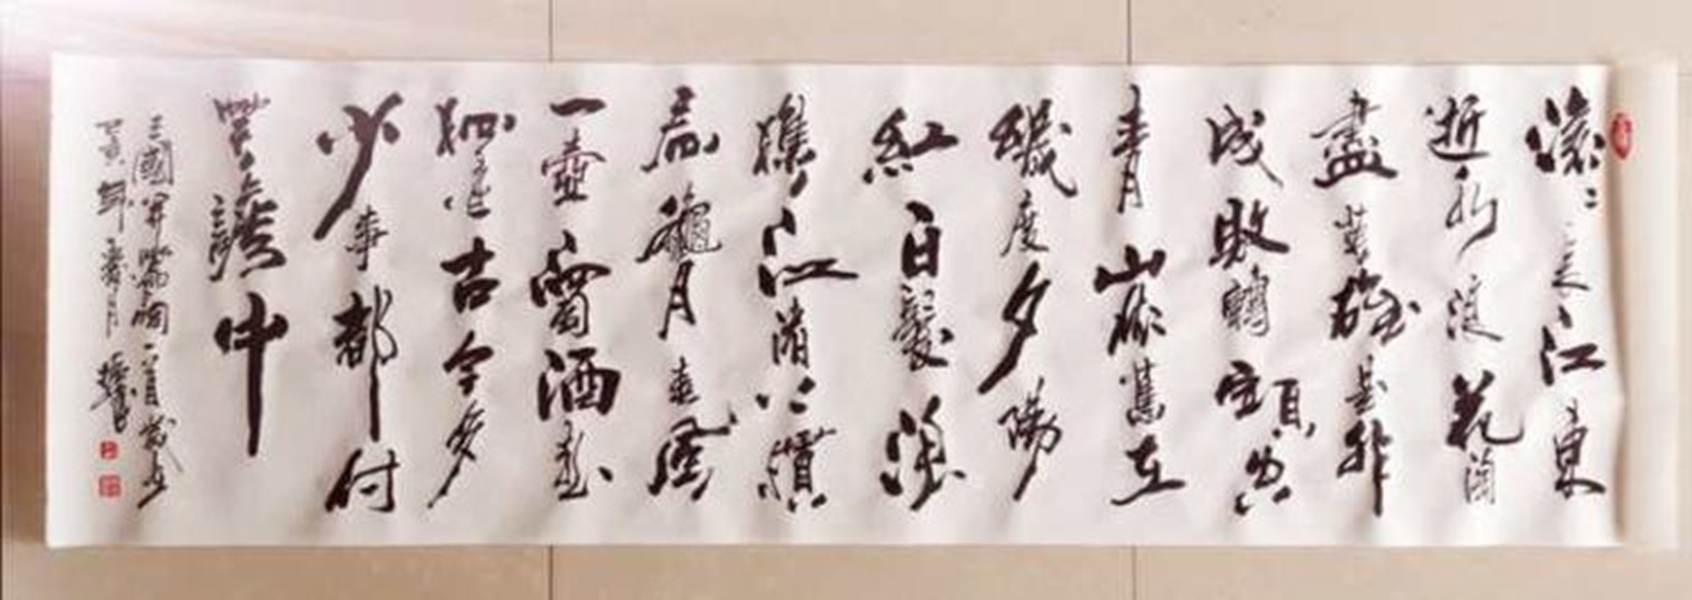 滚〻長江東
逝水浪花淘
盡英雄是非
成敗轉頭空
青山依舊在
幾度夕陽
紅白髮漁
樵江渚上慣
看秋月春風
一壺濁酒喜
相逢古今多
少事都付
笑談中
三國開篇詞一首
年